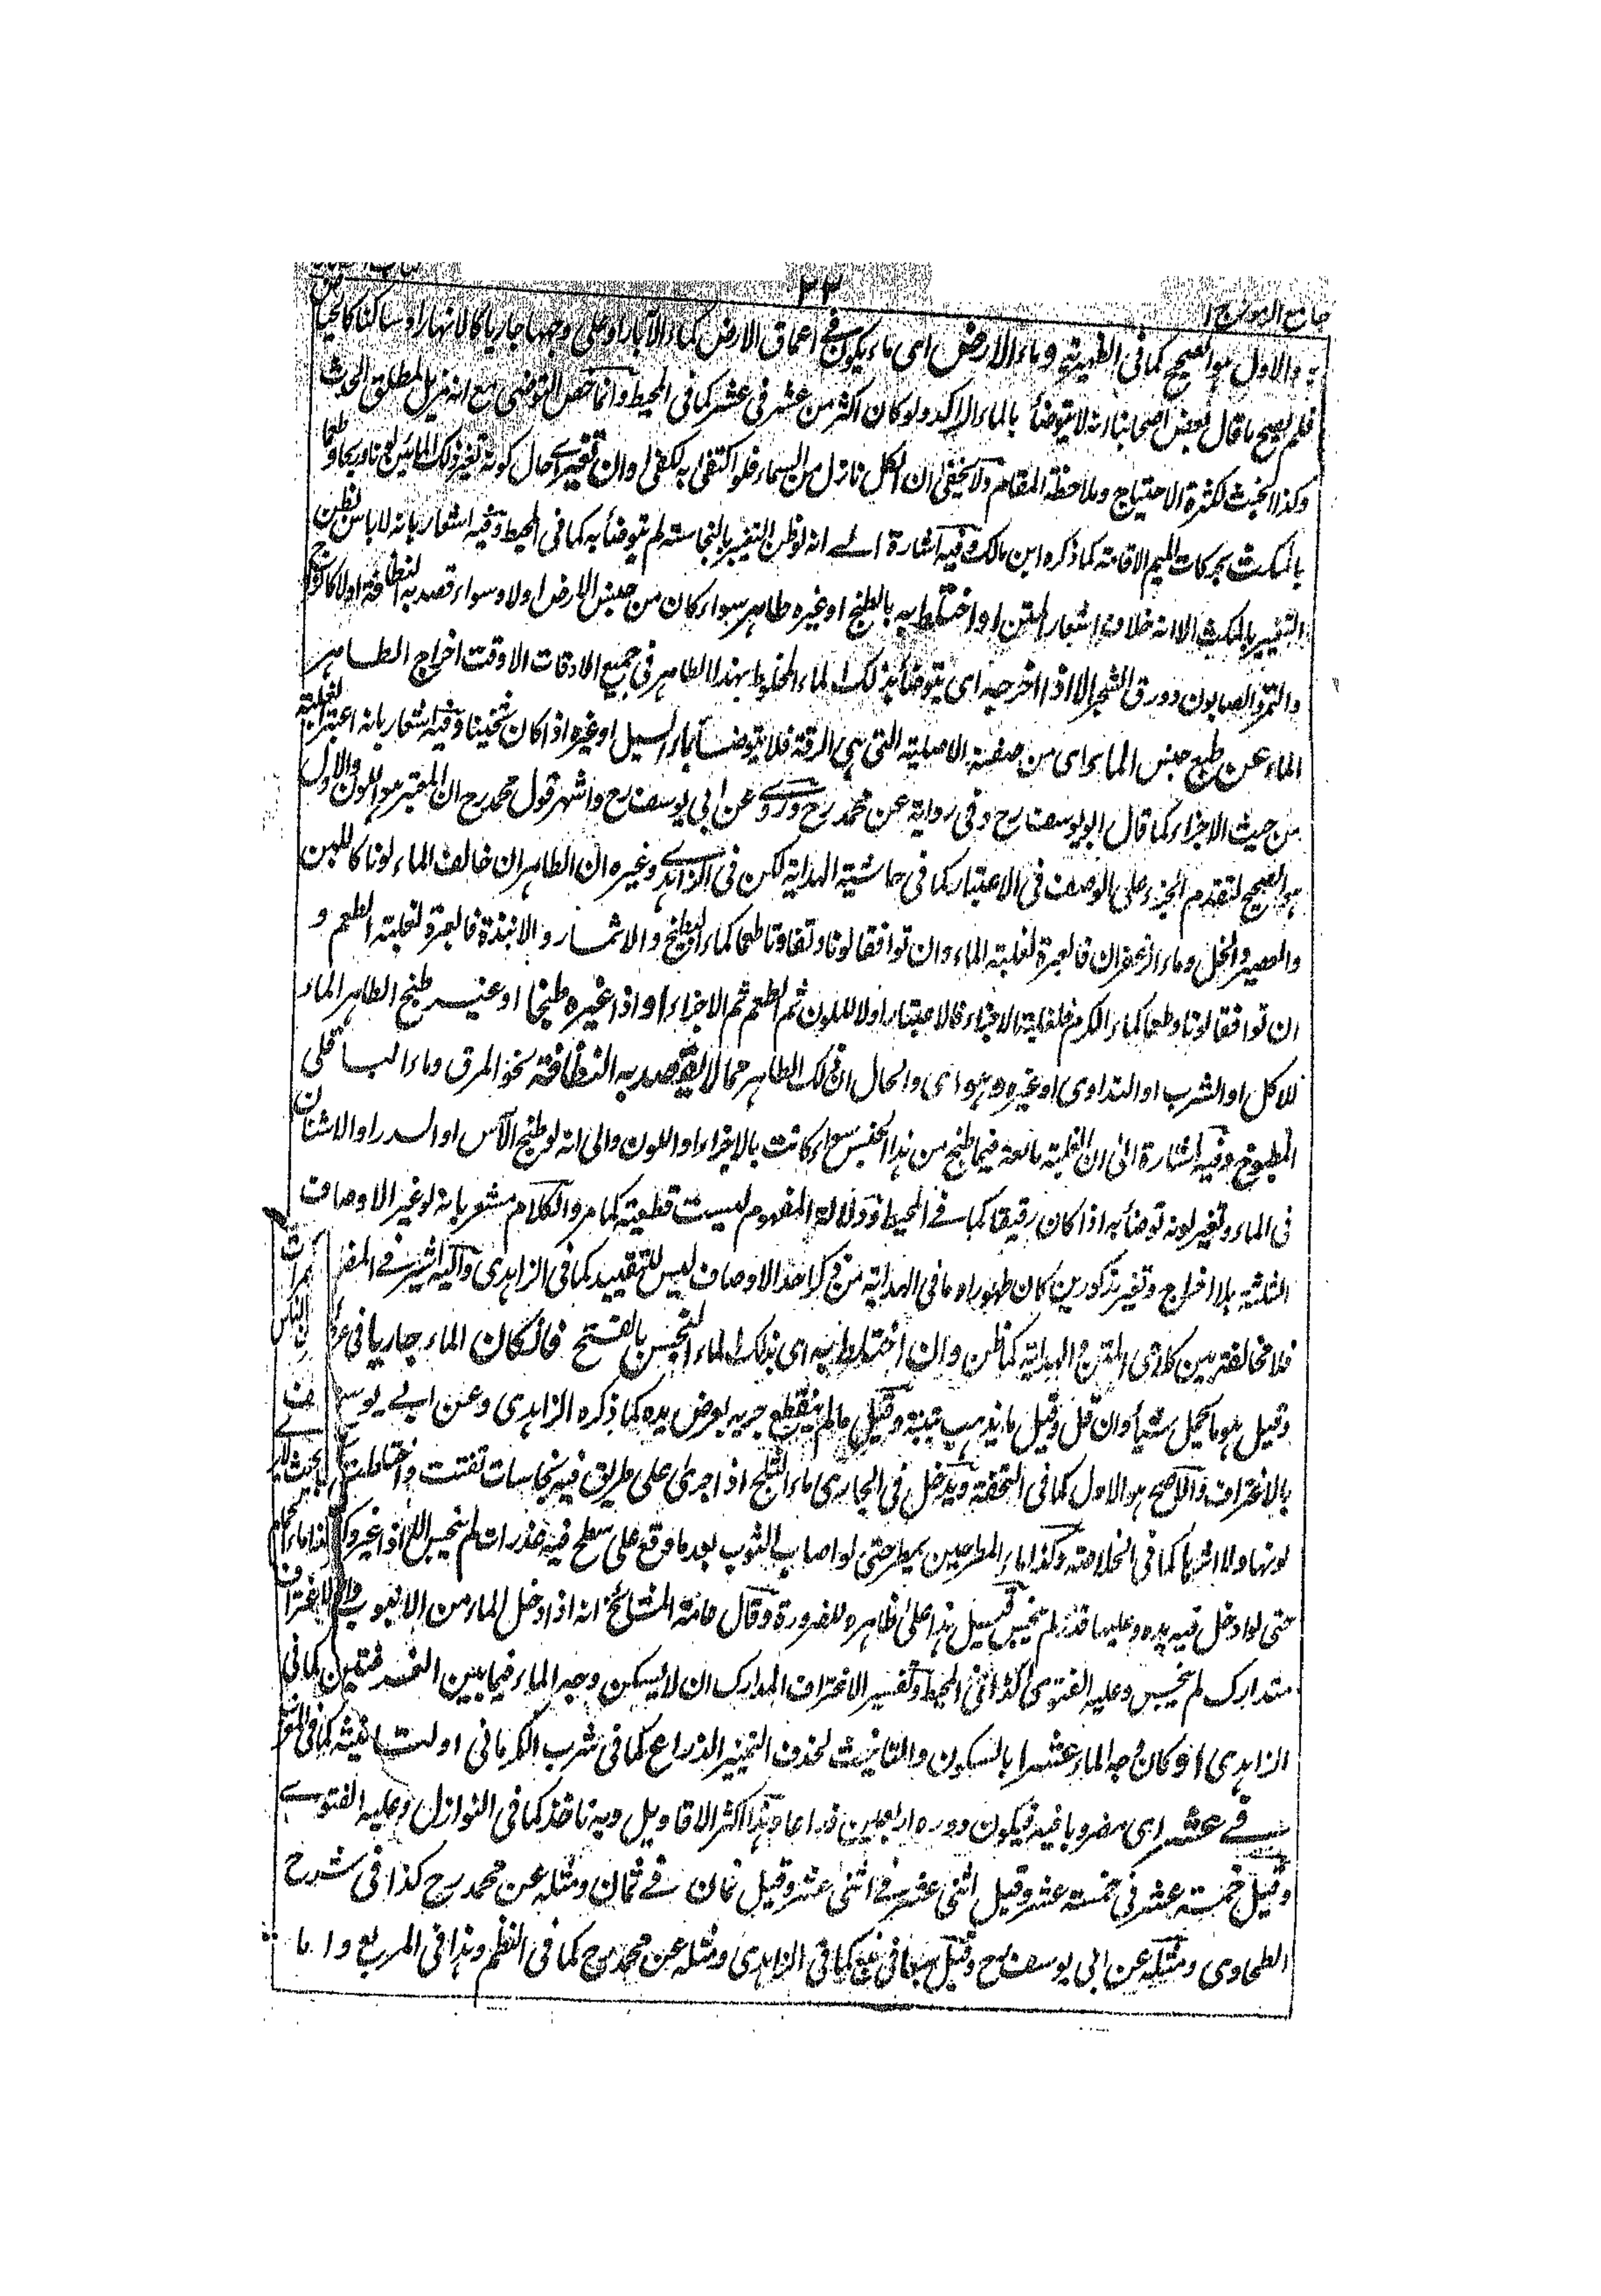 جامع الرموز ج ١
٣٣
به والاول هو الصحيح كما في الظهيرية وماء الارض اى ماء يكون في اعماق الارض كماء الآبار او على وجهها جاريا كالانهار او ساكنا كالحياض
فلم يصح ما قال بعض اصحابنا انه لا يتوضأ بالماء الراكد ولو كان اكثر من عشر في عشر كما في المحيط وانما خص التوضى مع انه مزيل لمطلق الحدث
وكذا الخبث لكثرة الاحتياج وملاحظة المقام ولا يخفى ان الكل نازل من السماء فلو اكتفى به لكفى وان تغير اى حال كونه تغير ذلك الماء ريحا او طعما
بالمكث بحركات الميم الاقامة كما ذكره ابن مالك وفيه اشارة الى انه لو ظن التغير بالنجاسة لم يتوضأ به كما في المحيط وفيه اشعار بانه لا باس بظن
التغير بالمكث الا انه خلاف اشعار المتن او اختلط به بالطبخ او غيره طاهر سواء كان من جنس الارض او لا وسواء قصد به النظافة او لا
والتمر والصابون وورق الشجر الا اذا اخرجه اى يتوضأ بذلك الماء المخلوط بهذا الطاهر في جميع الاوقات الا وقت اخراج الطاهر
الماء عن طبع جنس الماء اى من صفته الاصلية التى هى الرقة فلا يتوضأ بماء السيل او غيره اذا كان ثخينا وفيه اشعار بانه اعتبر الغلبة
من حيث الاجزاء كما قال ابو يوسف رح وفى رواية عن محمد رح وروى عن ابى يوسف رح واشهر قول محمد رح ان المعتبر هو اللون والاول
هو الصحيح لتقدم الجزء على الوصف في الاعتبار كما في حاشية الهداية لكن في الزاهدى وغيره ان الطاهر ان خالف الماء لونا كاللبن
والعصير والخل وماء الزعفران فالعبرة لغلبة الماء وان توافقا لونا وتفاوتا طعما كماء البطيخ والاشجار والانبذة فالعبرة لغلبة الطعم و
ان توافقا لونا وطعما كماء الكرم فلغلبة الاجزاء فالاعتبار اولا للون ثم الطعم ثم الاجزاء او اذا غيره طبخا او عنى طبخ الطاهر الماء
للاكل او الشرب او التداوى او غيره وهو اى والحال ان ذلك الطاهر مما لا يقصد به النظافة نحو المرق وماء الباقلى
المطبوخ وفيه اشارة الى ان الغلبة مانعة فيما طبخ من هذا الجنس سواء كانت بالاجزاء او اللون والى انه لو طبخ الآس او السدر او الاشنان
فى الماء وتغير لونه توضأ به اذا كان رقيقا كما في المحيط ودلالة المفهوم ليست قطعية كما مر والكلام مشعر بانه لو غير الاوصاف
الثلثة بلا اخراج وتغير مذكورين كان طهورا وما فى الهداية من ذكر احد الاوصاف ليس للتقييد كما فى الزاهدى واليه اشير فى المضمرات
فلا مخالفة بين كلامى المتن والهداية كما ظن وان اختلط به اى بذلك الماء النجس بالفتح فان كان الماء جاريا فى عرف الناس
وقيل هو ما يحمل شيئا وان قل وقيل ما يذهب بتبنة وقيل ما لم ينقطع جريه بعرض يده كما ذكره الزاهدى وعن ابى يوسف
بالاغتراف والاصح هو الاول كما فى التحفة ويدخل فى الجارى ماء الثلج اذا جرى على طريق فيه نجاسات تفتت واختلطت بحيث لا يرى
لونها ولا اثرها كما فى الخلاصة وكذا ماء المطر حين يمطر حتى لو اصاب الثوب بعد ما وقع على سطح فيه عذرات لم ينجس الا اذا غير وكذا ماء الحمام
حتى لو ادخل فيه يده وعليها قذر لم ينجس قيل هذا على ظاهره للضرورة وقال عامة المشائخ انه اذا دخل الماء من الانبوب والاغتراف
متدارك لم ينجس وعليه الفتوى كذا فى المحيط وتفسير الاغتراف المدارك ان لا يسكن وجه الماء فيما بين الغرفتين كما فى
الزاهدى او كان وجه الماء عشرا بالسكون والتانيث لحذف التمييز الذراع كما فى شرب الكرمانى او لتانيثه كما فى المغرب
فى عشر اى مضروبا فيه فيكون دوره اربعين ذراعا وهذا اكثر الاقاويل وبه ناخذ كما فى النوازل وعليه الفتوى
وقيل خمسة عشر فى خمسة عشر وقيل اثنى عشر فى اثنى عشر وقيل ثمان فى ثمان ومثله عن محمد رح كذا فى شرح
الطحاوى ومثله عن ابى يوسف رح وقيل سبعا فى سبع كما فى الزاهدى ومثله عن محمد رح كما فى النظم وهذا فى المربع واما